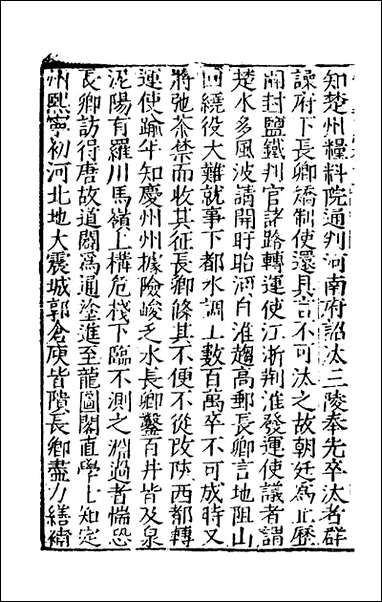 知楚州糧料院通判河南府詔汰三陵奉先卒汰者群
譟府下長卿矯制使還具言不可汰之故朝廷爲止歷
開封鹽鐵判官諸路轉運使江浙荆淮發運使議者謂
楚水多風波請開盱眙河自淮趨高郵長卿言地阻山
回繞役大難就事下都水調工數百萬卒不可成時又
將弛茶禁而收其征長卿條其不便不從改陜西都轉
運使踰年知慶州州據險峻乏水長卿鑿百井皆及泉
泥陽有羅川馬嶺上構危棧下臨不測之淵過者惴恐
長卿訪得唐故道闢爲通塗進至龍圖閣直學士知定
州熙寧初河北地大震城郭倉庾皆隤長卿盡力繕補